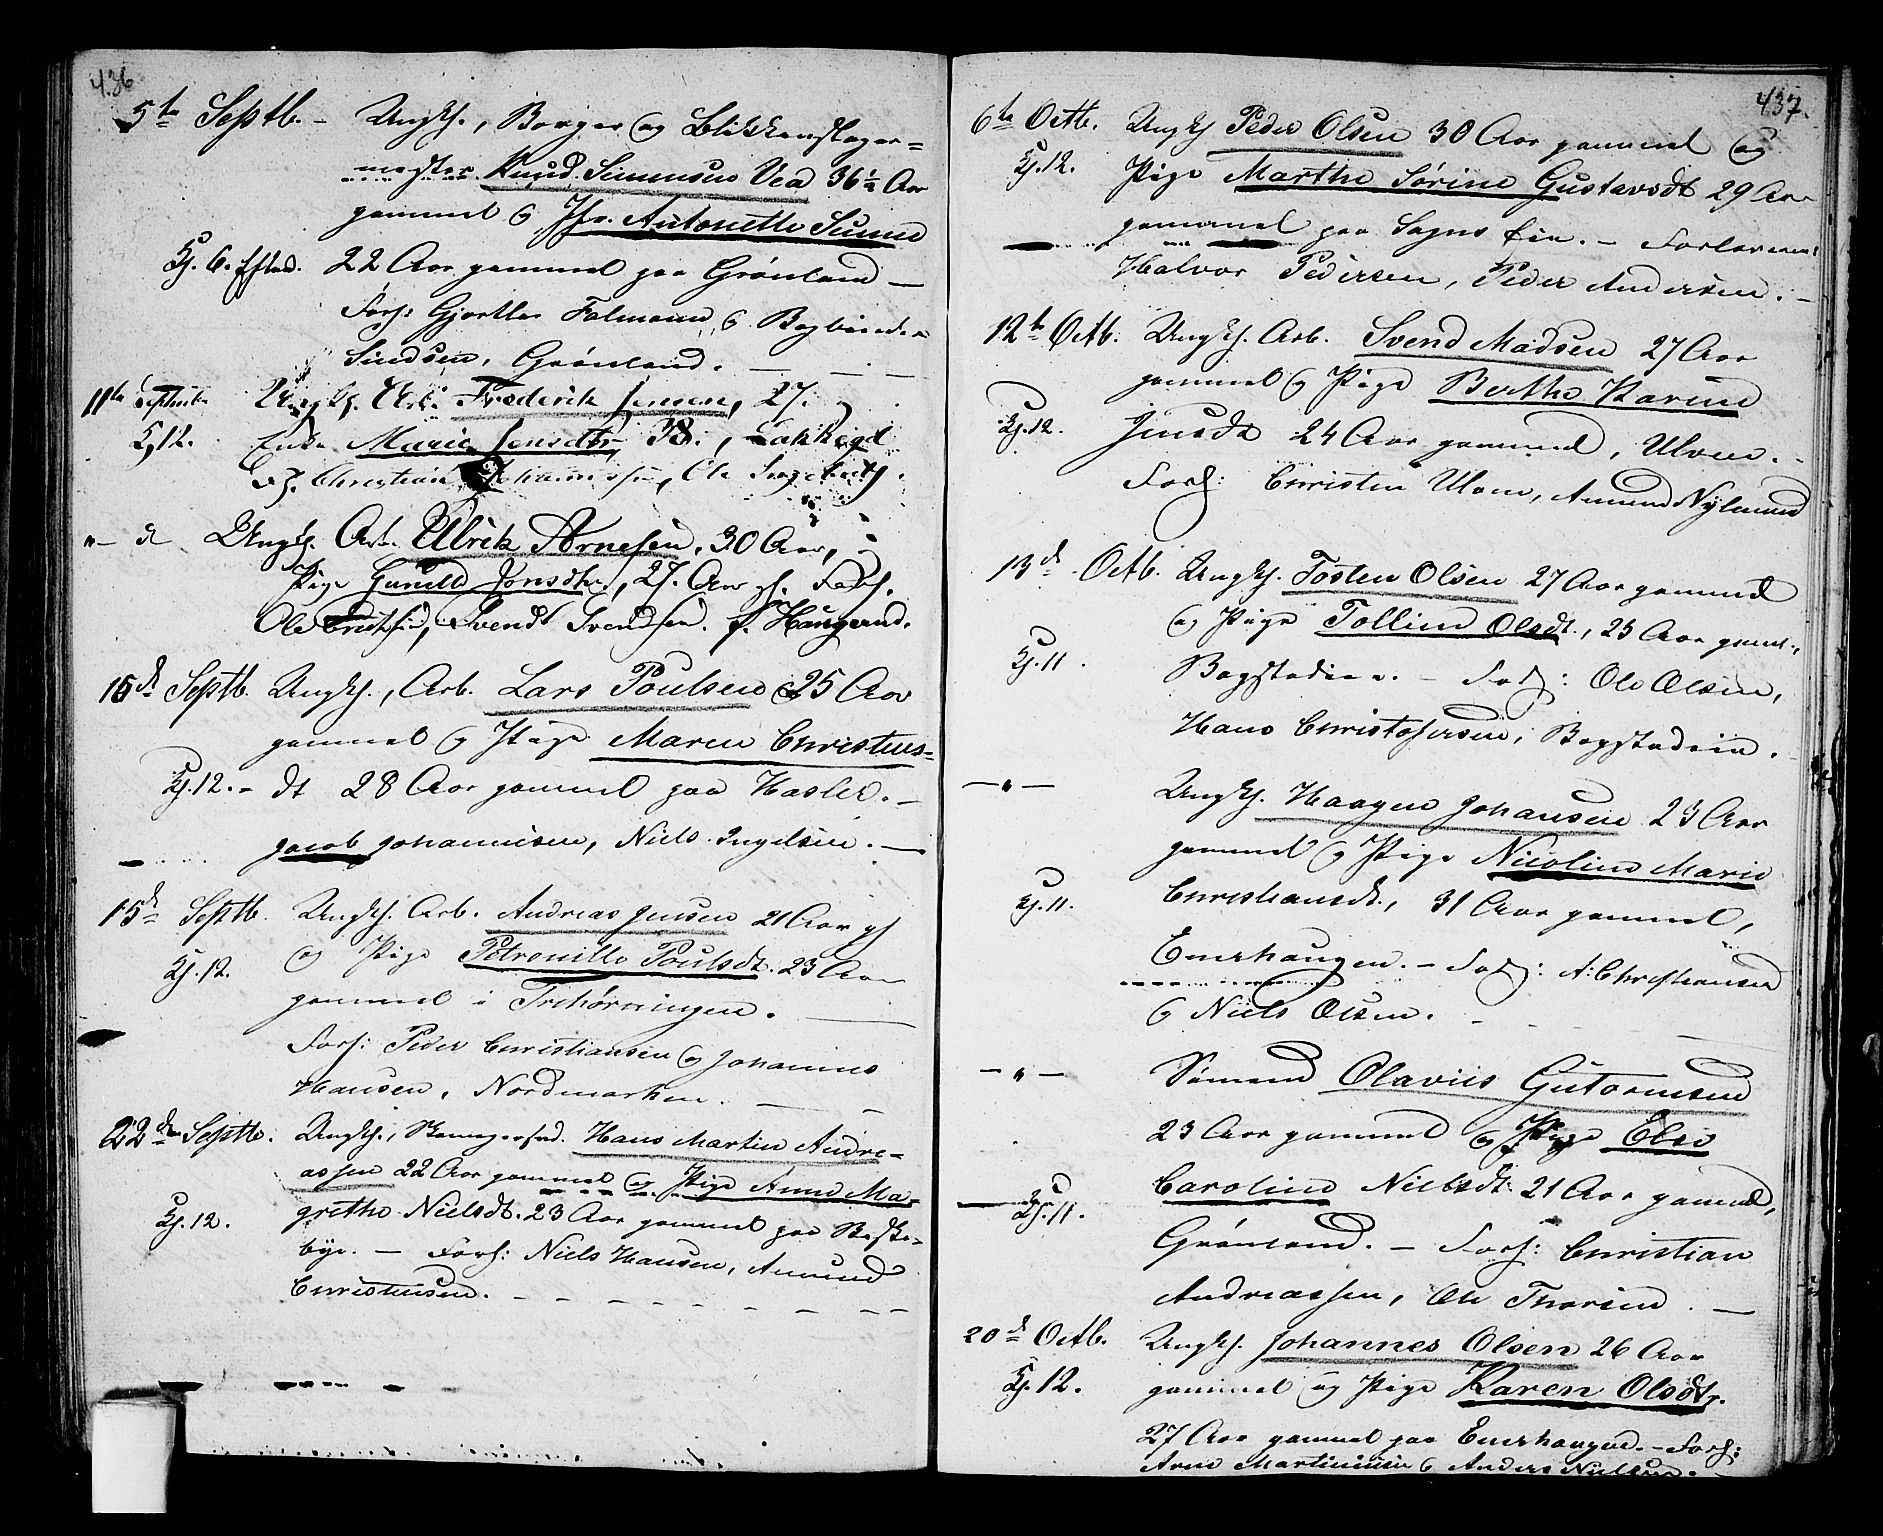 436
5te Septb. - Ungk., Borger og Blikkenslager=
mester Knud Simensen Vea 36 1/2 Aar
gammel og Jfr. Antonette
Kl. 6. Eftmd. 22 Aar gammel paa Grönland —
Forl: Gjørtler og Bogbinder
Grönland. —
11te Septembr Ungk. Arb: Frederik Jensen, 27. og
Kl. 12. Enke Marie Jensdtr, 38.,
Christian Johannesen, Ole
"— d Ungk. Arb. Ulrik Arnesen, 30 Aar, og
Pige Gunild Jonsdtr, 27. Aar gl. Forl.
Ole Erichsen, Svend Svendsen.
15de Septb. Ungk., Arb. Lars Poulsen 25 Aar
gammel og Pige Maren Christens-
Kl. 12. - dt 28 Aar gammel paa Hasler. —
Jacob Johannesen, Niels Ingelsen. —
15de Septb. Ungk. Arb. Andreas Jensen 21 Aar gl
Kl. 12. og Pige Petronille Poulsdt. 23 Aar
gammel i Trehörningen. —
Forl: Peder Christiansen og Johannes
Hansen, Nordmarken. —
22de Septb. Ungk., Hans Martin Andre-
assen 22 Aar gammel og Pige Anne Ma-
Kl. 12. grethe Nielsdt. 23 Aar gammel paa Bakke-
bye. — Forl: Niels Hansen, Amund
Christensen.
437.
6te Octb. Ungk Peder Olsen 30 Aar gammel og
Kl. 12. Pige Marthe Sörine Gustavsdt 29 Aar
gammel paa Sogns Eie. — Forlovere:
Halvor Pedersen, Peder Andersen. —
12te Octb. Ungk. Arb. Svend Madsen 27 Aar
gammel og Pige Berthe Karine
Kl. 12. Jensdt 24 Aar gammel, Ulven. —
Forl: Christen Ulven, Amund Nylænd
13de Octb. Ungk. Tosten Olsen 27 Aar gammel
og Pige Tolline Olsdt., 25 Aar gaml.,
Kl. 11. Bogstadeie. — Forl: Ole Olsen,
Hans Christophersen, Bogstadeie.
— " — Ungk. Haagen Johansen 23 Aar
gammel og Pige Nicoline Marie
Kl. 11. Christiansdt., 31 Aar gammel,
Enerhaugen. — Forl: A: Christiansen
og Niels Olsen.
— " — Sömand Olavus Gutormsen
23 Aar gammel og Pige Else
Caroline Nielsdt. 21 Aar gammel,
Kl. 11. Grönland. — Forl: Christian
Andreassen, Ole Thorsen. —
20de Octb. Ungk. Johannes Olsen 26 Aar
Kl. 12. gammel og Pige Karen Olsdtr.
27 Aar gammel paa Enerhaugen. — Forl:
Arne Martinsen og Anders Nielsen. —